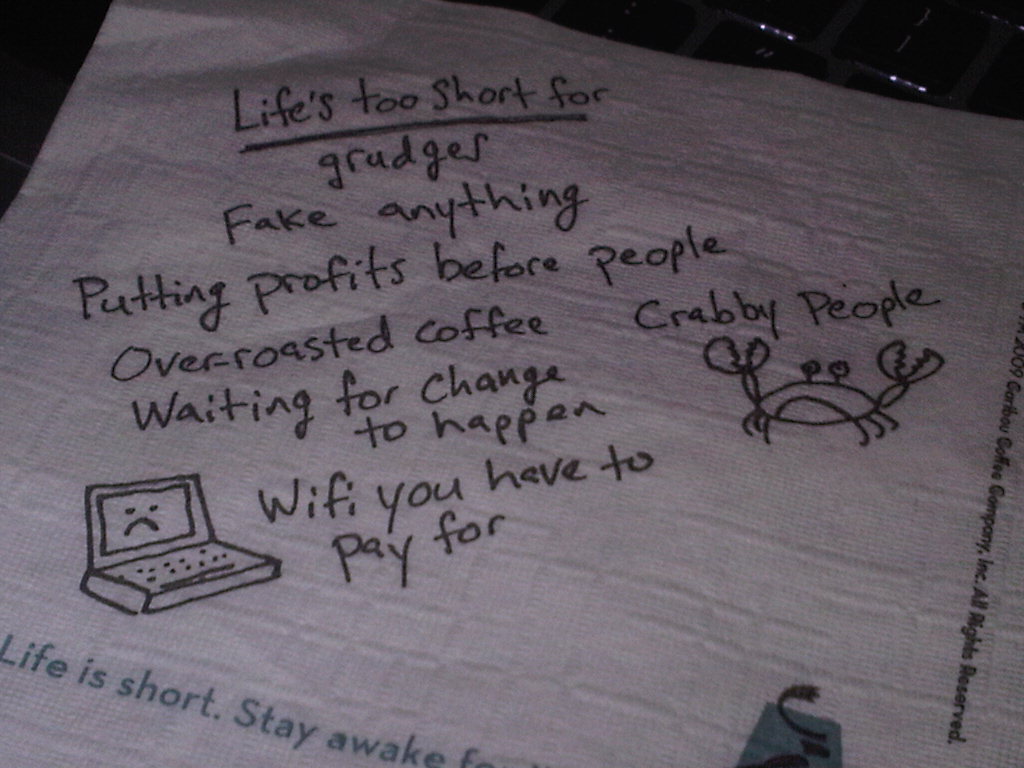 Life's too short for
grudges
Fake anything
Putting profits before people
Over-roasted coffee
Crabby People
Waiting for change
to happen
Wifi you have to
pay for
Life is short. Stay awake
2009 Caribou Coffee Company, Inc. All Rights Reserved.